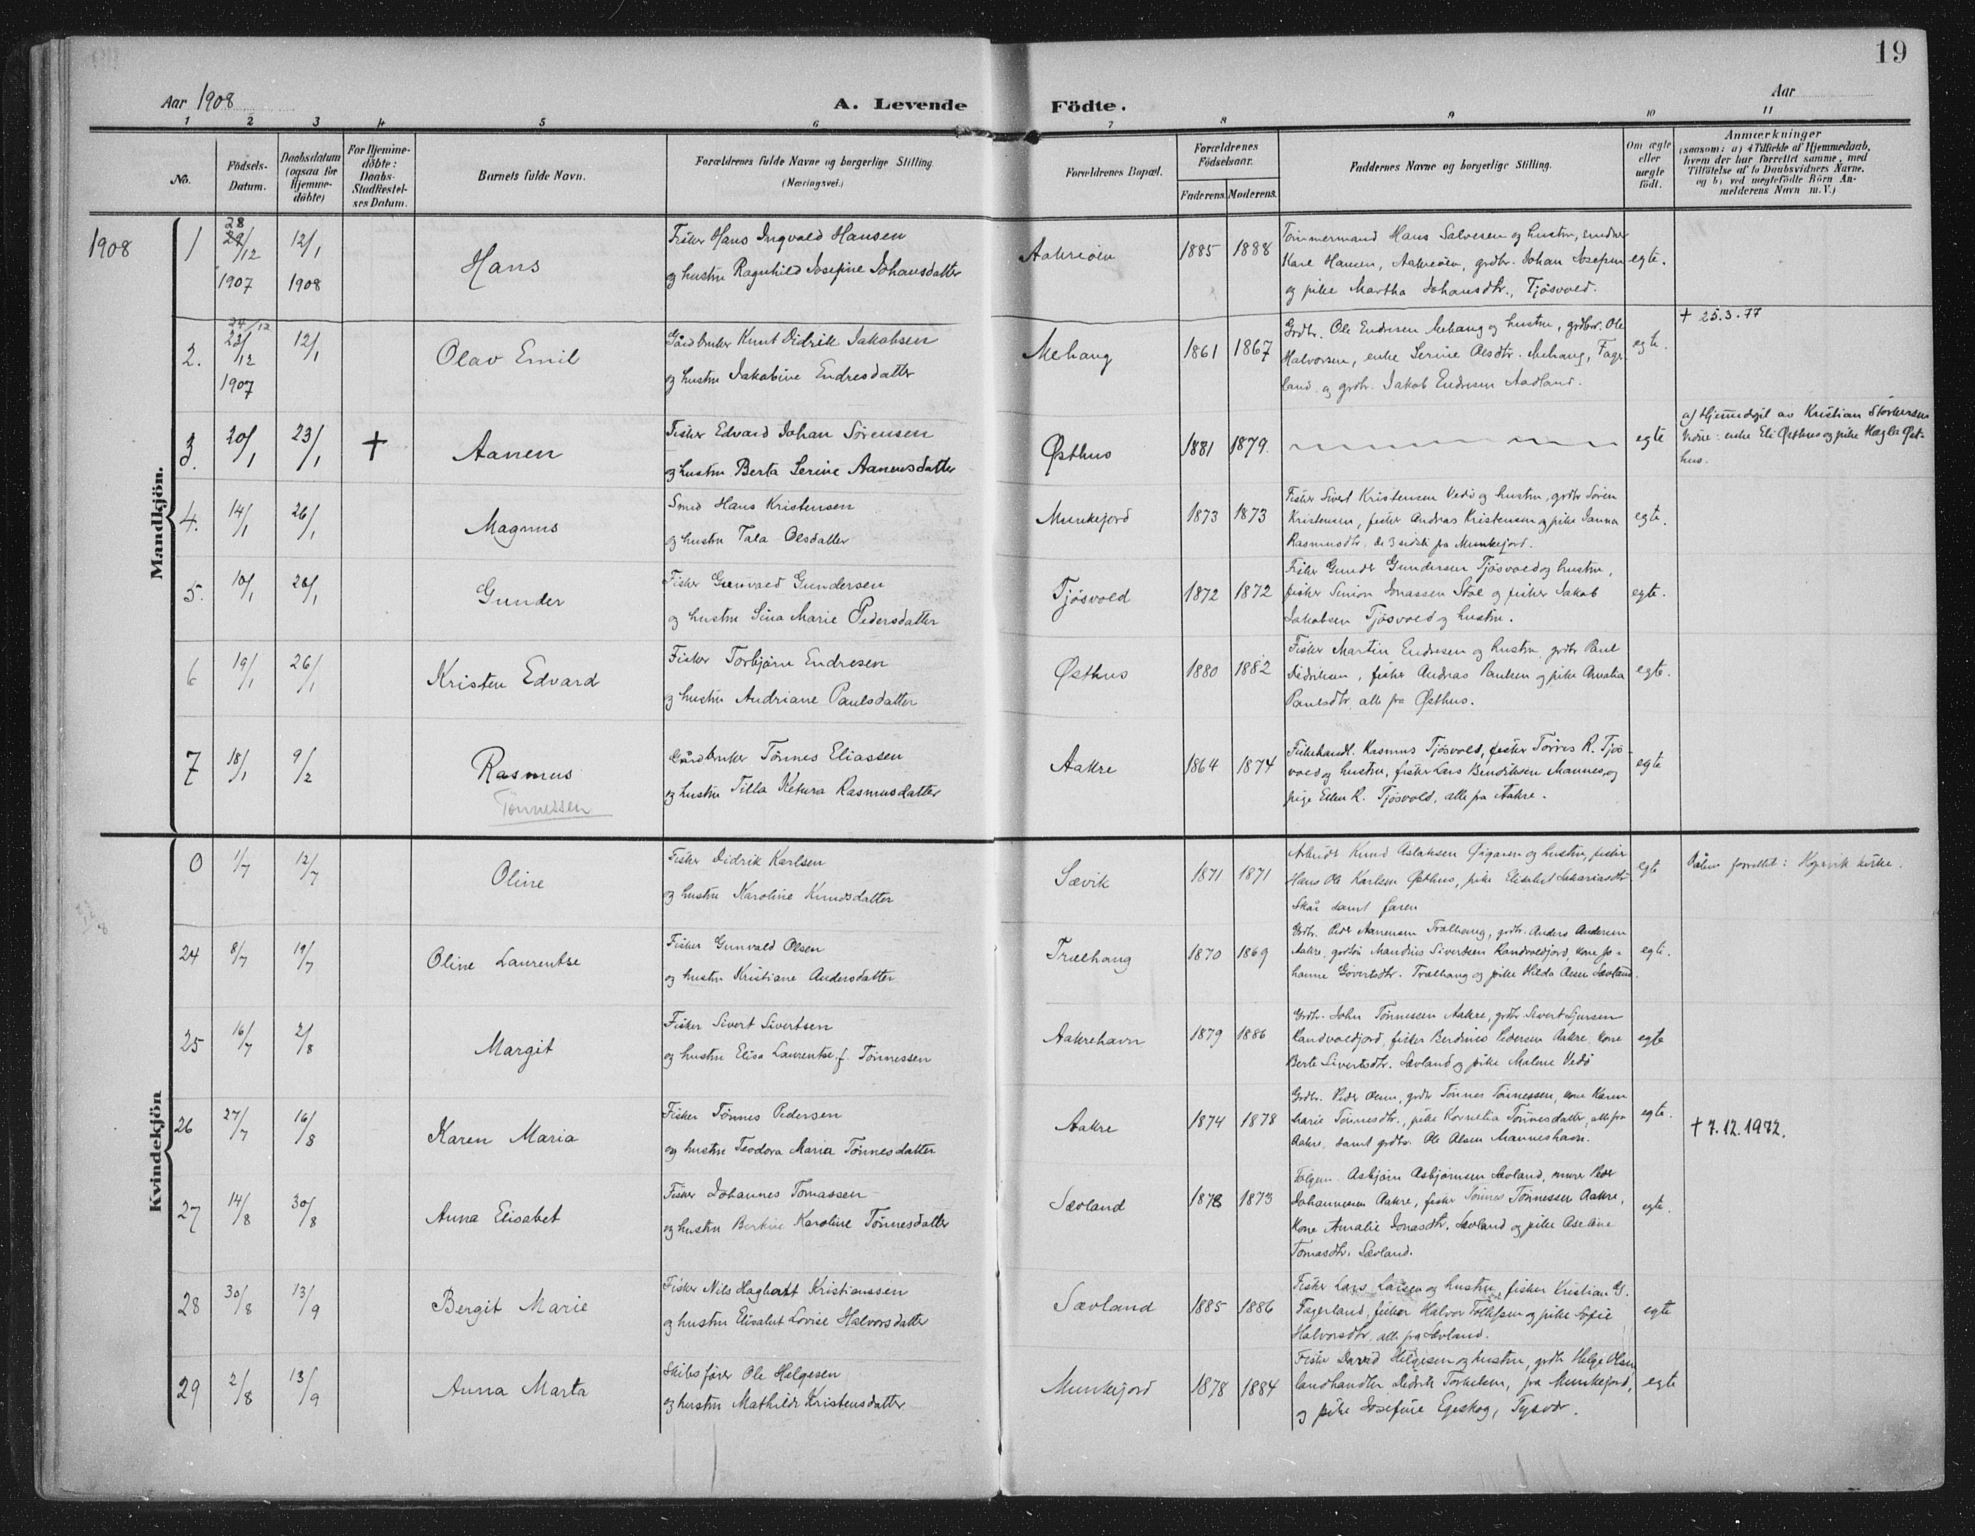 19
Aar 1908
A. Levende Födte.
Aar
1 2 3 4 5 6 7 8 9 10 11
No.
Födsels-Datum.
Daabsdatum (ogsaa for Hjemme-döbte)
For Hjemme-döbte: Daabs-Stadfæstel-ses Datum.
Barnets fulde Navn.
Forældrenes fulde Navne og borgerlige Stilling. (Næringsvei.)
Forældrenes Bopæl.
Forældrenes Födselsaar.
Faderens. Moderens.
Faddernes Navne og borgerlige Stilling.
Om ægte eller uægte födt.
Anmærkninger
(saasom: a) i Tilfælde af Hjemmedaab, hvem der har forrettet samme, med Tilföielse af to Daabsvidners Navne, og b) ved uægtefödte Börn An-melderens Navn m. V.)
Mandkjön.
1908
1 28/12 1907 12/1 1908 Hans
Fisker Hans Ingvald Hansen
og hustru Ragnhild Josefine Johansdatter
Aakreøen 1885 1888
Tømmermand Hans Salvesen og hustru,
Karl Hansen, Aakreøen, grdbr. Johan Josefsen
og pike Martha Johansdtr., Tjøsvold.
egte.
2. 24/12 23/12 1907 12/1 Olav Emil
Gårdbruker Knut Didrik Jakobsen
og hustru Jakobine Endresdatter
Mehaug 1861 1867
Grdbr. Ole Endresen Mehaug og hustru, grdbr. Ole
Halvorsen, enke Serine Olsdtr. Mehaug, Fage
land og grdbr. Jakob Endresen Aadland.
egte.
+ 25.3.77
3. 20/1 23/1 + Aanen
Fisker Edvard Johan Sørensen
og hustru Berta Serine Aanensdatter
Østhus 1881 1879.
egte
a) Hjemmedøpt av Kristian Størkersen
Vidne: enke Eli Østhus og pike Øst-
hus.
4. 14/1 26/1 Magnus
Smed Hans Kristensen
og hustru Tala Olsdatter
Munkejord 1873 1873
Fisker Sivert Kristensen Vedø og hustru, grdbr Søren
Kristensen, fisker Andreas Kristensen og pike Janna
Rasmusdtr. de 3 sidste fra Munkejord.
egte.
5. 10/1 26/1 Gunder
Fisker Gunvald Gundersen
og hustru Sina Marie Pedersdatter
Tjøsvold 1872 1872
Fisker Gunder Gundersen Tjøsvold og hustru,
fisker Simon Jonassen Stol og fisker Jakob
Jakobsen Tjøsvold og hustru.
egte.
6 19/1 26/1 Kristen Edvard
Fisker Torbjørn Endresen
og hustru Andriane Paulsdatter
Østhus 1880 1882
Fisker Martin Endresen og hustru grdbr Paul
Didriksen, fisker Andreas Paulsen og pike Amalia
Paulsdtr, alle fra Østhus.
egte.
7 18/1 9/2 Rasmus
Tønnessen
Gårdbruker Tønnes Eliassen
og hustru Tilla Ketura Rasmusdatter
Aakre 1864 1874
Fiskehandl. Rasmus Tjøsvold, fisker Torres R. Tjøs-
vold og hustru, fisker Lars Bendiksen Mannes, og
pige Ellen R. Tjøsvold, alle fra Aakre.
egte
Kvindekjön
0 1/7 12/7 Oline
Fisker Didrik Karlsen
og hustru Karoline Knudsdatter
Sævik 1871 1871
Arbeider Knud Aslaksen Øigaren og hustru, fisker
Hans Ole Karlsen Østhus, pike Elisabet Sakariasdtr
Skår samt faren
egte
Dåben forrettet: Kopervik kirke.
24 8/7 19/7 Oline Laurentse
Fisker Gunvald Olsen
og hustru Kristiane Andersdatter
Trælhaug 1870 1869
Grdbr. Peder Aanensen Trælhaug, grdbr. Anders Andersen
Aakre, Mandius Sivertsen Landvoldjord, kone Jo-
hanne Govertsdtr. Trælhaug og pike Hilda Olsen Sævland.
egte.
25 16/7 2/8 Margit
Fisker Sivert Sivertsen
og hustru Elisa Laurentse f. Tønnessen
Aakrehavn 1879 1886
Grdbr. John Tønnesen Aakre, grdbr Sivert
Landvoldjord, fisker Berdines Pedersen Aakre, kone
Berte Sivertsdtr. Sævland og pike Malene Vedø
egte
26 27/7 16/8 Karen Maria
Fisker Tønnes Pedersen
og hustru Teodora Maria Tønnesdatter
Aakre 1874 1878
Grdbr. Peder Olsen, grdbr Tønnes Tønnessen, kone Karen
Marie Tønnesdtr., pike Kornelia Tønnesdatter, alle fra
Aakre, samt grdbr. Ole Olsen Manneshavn.
egte.
+ 7.12.1972.
27 14/8 30/8 Anna Elisabet
Fisker Johannes Tomassen
og hustru Bertine Karoline Tønnesdatter
Sævland 1878 1873
Asbjørn Asbjørnsen Sævland, murer Peder
Johannesen Aakre, fisker Tønnes Tønnessen Aakre,
Kone Amalie Jonasdtr. Sævland og pike Aseline
Tomasdtr. Sævland.
egte.
28 30/8 13/9 Bergit Marie
Fisker Nils Hagbart Kristianssen
og hustru Elisabet Lovise Halvorsdatter
Sævland 1885 1886
Fisker Lars Larsen og hustru, fisker Kristian G.
Fagerland, fisker Halvor Tollefsen og pike Sofie
Halvorsdtr, alle fra Sævland.
egte
29 2/8 13/9 Anna Marta
Skibsfører Ole Helgesen
og hustru Mathilde Kristensdatter
Munkejord 1878 1884
Fisker David Helgesen og hustru, grdbr Helge Olsen
landhandler Didrik Torkelsen, fra Munkejord,
og pike Josefine Egeskog, Tysvær.
egte